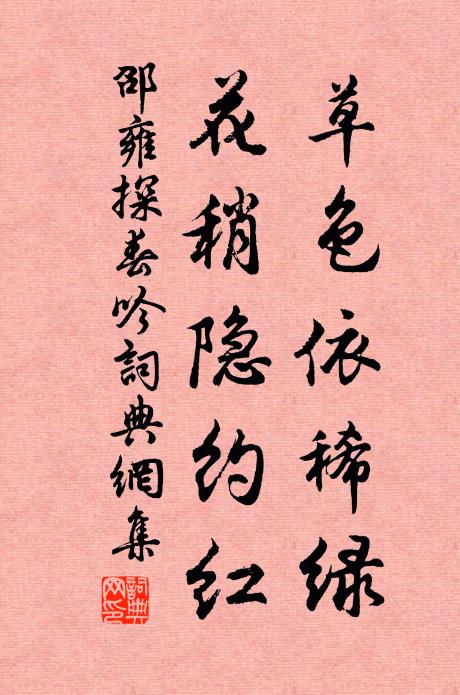 草色依稀绿
花稍隐约红
邵雍探春吟詞典網集
詞典网印